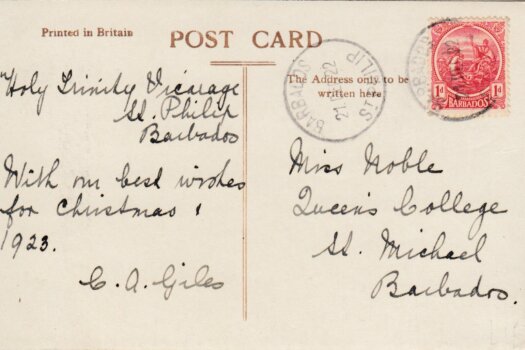 Printed in Britain
POST CARD
The Address only to be
written here
BARBADOS
ST. PHILIP
1d BARBADOS 1d
Holy Trinity Vicarage
St. Philip
Barbados
With our best wishes
for Christmas &
1923.
C. A. Giles
Miss Noble
Queen's College
St. Michael
Barbados.